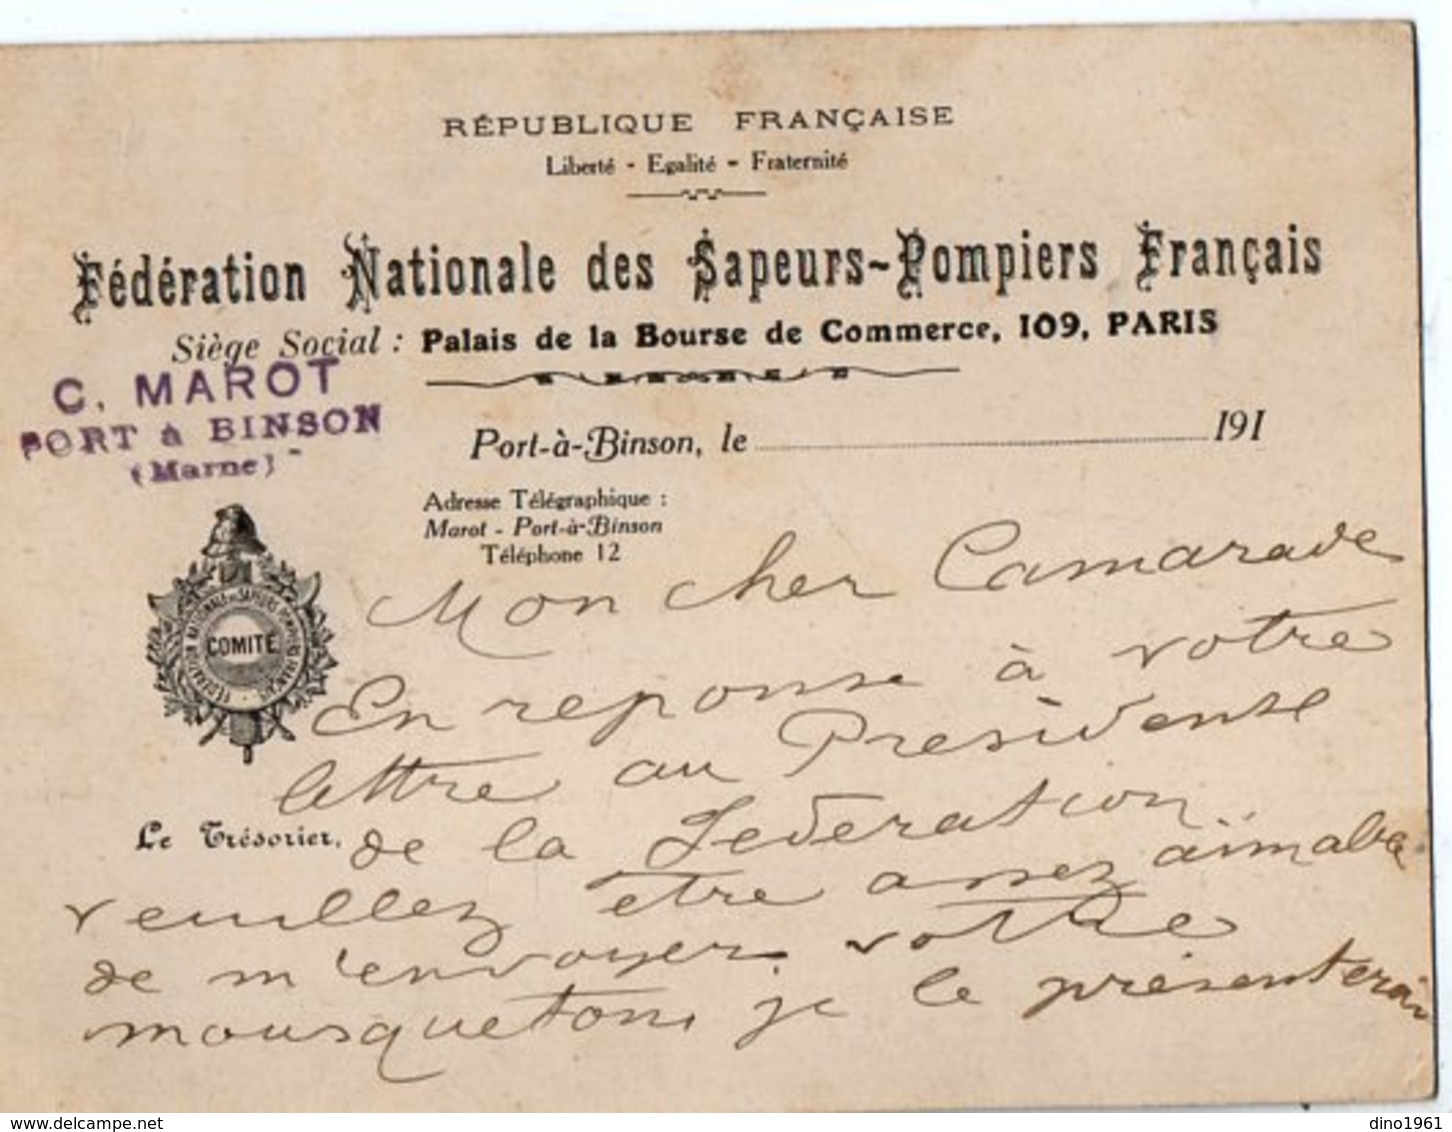 RÉPUBLIQUE FRANÇAISE
Liberté - Egalité - Fraternité
Fédération Nationale des Sapeurs-Pompiers Français
Siège Social : Palais de la Bourse de Commerce, 109, PARIS
C. MAROT
PORT à BINSON
(Marne)
Port-à-Binson, le 191
Adresse Télégraphique :
Marot - Port-à-Binson
Téléphone 12
FÉDÉRATION NATIONALE DES SAPEURS POMPIERS FRANÇAIS
COMITÉ
Le Trésorier,
Mon cher Camarade
En reponse à votre
lettre au Présidense
de la Federation
veuillez etre assez aimable
de m'envoyer votre
mousqueton, je le présenterai
delcampe.net
dino1961